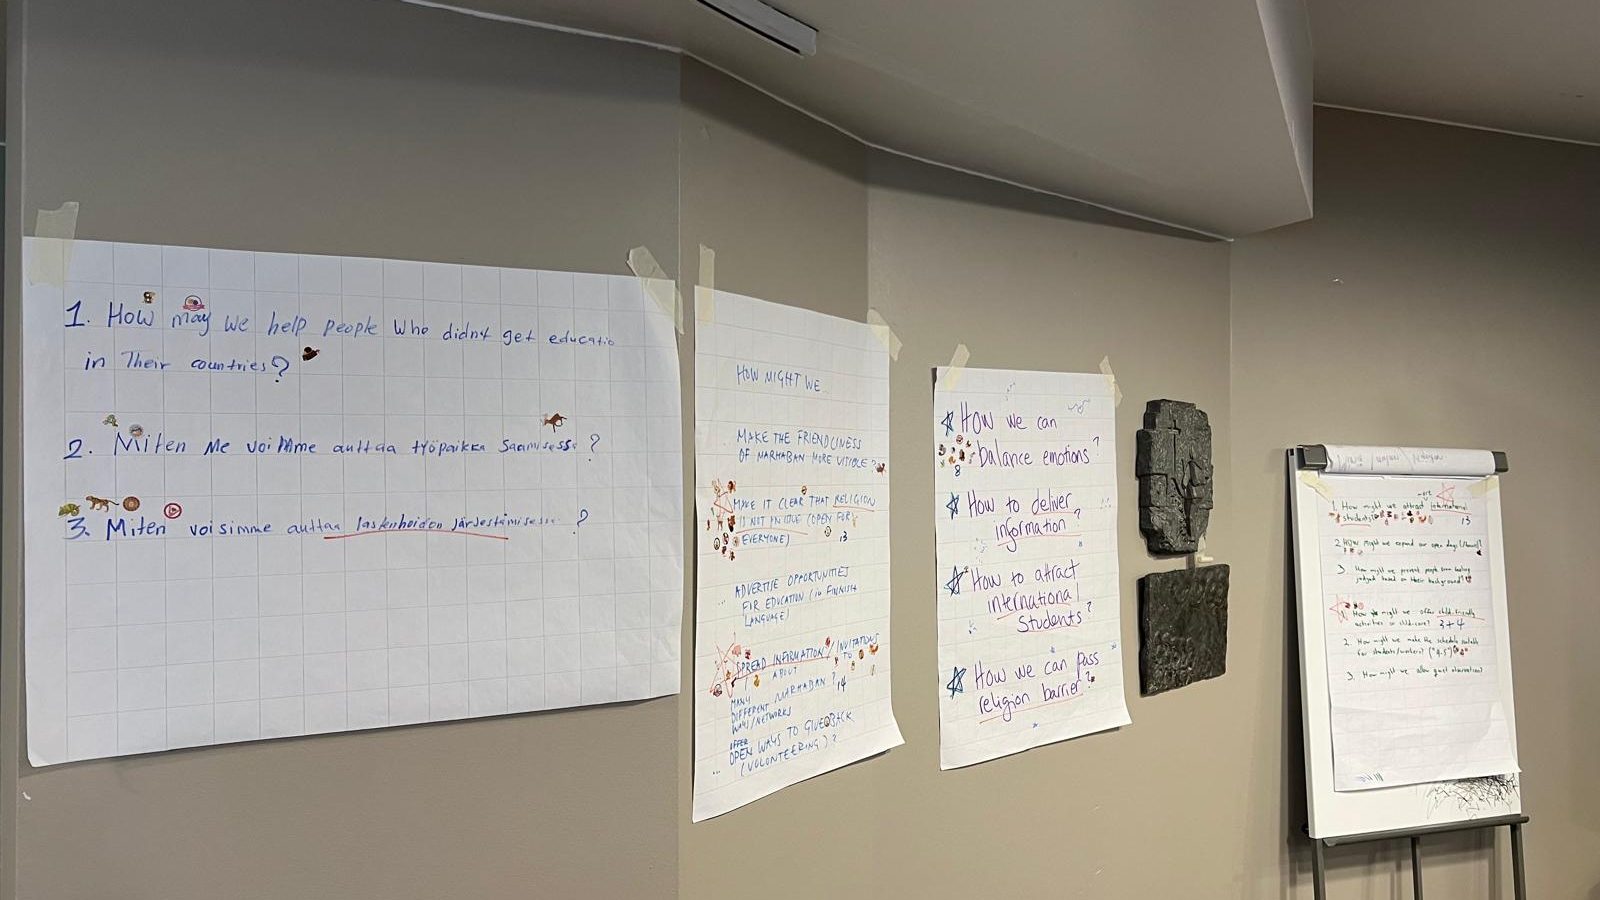 1. How may we help people who didnt get educatio
in Their countries?
2. Miten me voimme auttaa työpaikka saamisessa ?
3. Miten voisimme auttaa lastenhoidon järjestämisessa ?
HOW MIGHT WE...
MAKE THE FRIENDLINESS
OF MARHABAN MORE VISIBLE?
MAKE IT CLEAR THAT RELIGION
IS NOT AN ISSUE (OPEN FOR
EVERYONE)
13
ADVERTISE OPPORTUNITIES
... FOR EDUCATION (in FINNISH
LANGUAGE)
SPREAD INFORMATION / INVITATIONS
TO
ABOUT
MARHABAN?
14
MANY
DIFFERENT
WAYS/NETWORKS
OFFER
OPEN WAYS TO GIVE BACK
... (VOLONTEERING)?
How we can
balance emotions?
8
How to deliver
information?
How to attract
international
Students?
How we can pass
religion barrier?
more
1. How might we attract international
students?
13
2. How might we expand our open days/
3. How might we prevent people from feeling
judged based on their background?
1. How might we offer child-friendly
activities or child-care? 3+4
2. How might we make the schedule suitable
for students/workers? ("4-5")
3. How might we allow guest observation?